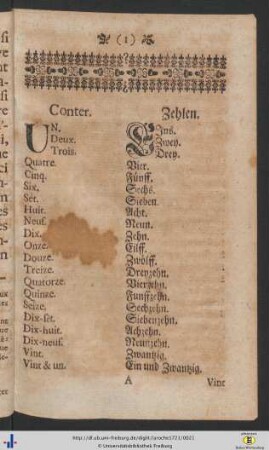 (1)
Conter. Zehlen.
UN. Eins.
Deux. Zwey.
Trois. Drey.
Quatre. Vier.
Cinq. Fünff.
Six. Sechs.
Set. Sieben.
Huit. Acht.
Neuf. Neun.
Dix. Zehn.
Onze. Eilff.
Douze. Zwölff.
Treize. Dreyzehn.
Quatorze. Vierzehn.
Quinze. Funffzehn.
Seize. Sechzehn.
Dix-set. Siebenzehn.
Dix-huit. Achzehn.
Dix-neuf. Neunzehn.
Vint. Zwantzig.
Vint & un. Ein und Zwantzig.
A Vint
© Universitätsbibliothek Freiburg